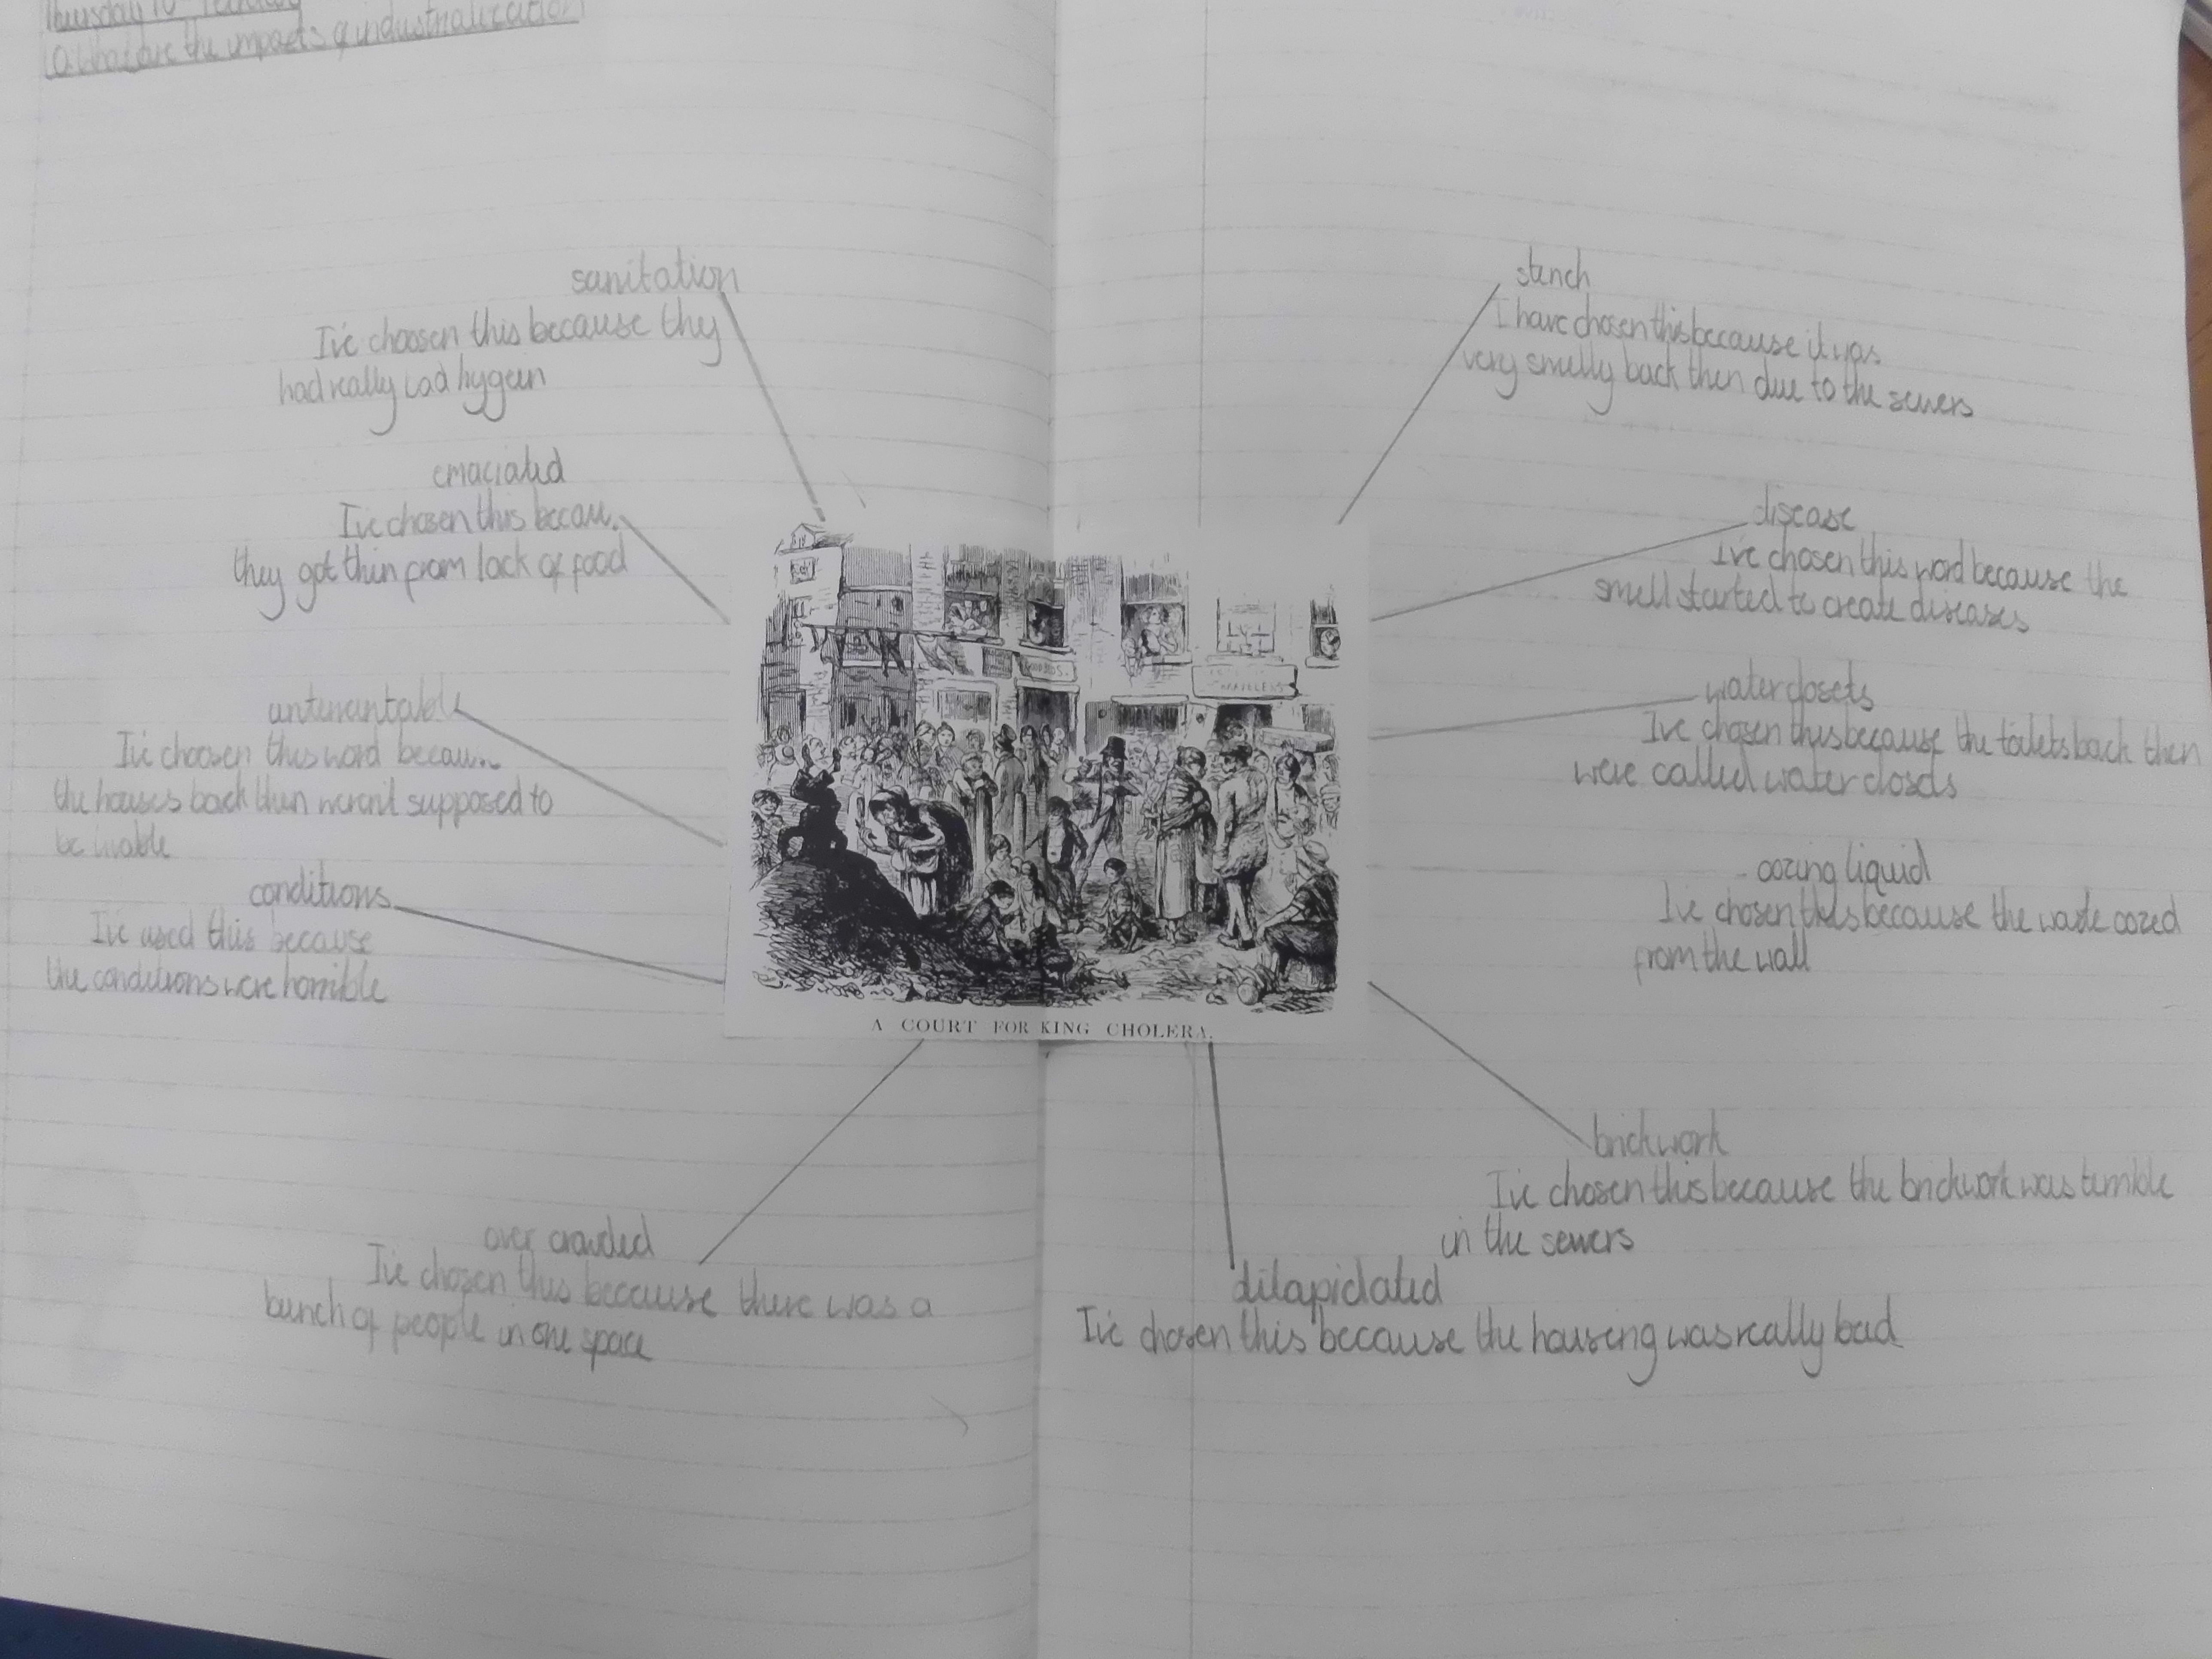 Thursday 10th February
LO: What are the impacts of industrialization
sanitation
I've choosen this because they
had really bad hygeen
emaciated
I've chosen this becaus
they got thin from lack of food
untenantable
I've choosen this word because
the houses back then weren't supposed to
be
conditions
I've used this because
the conditions were horrible
over crowded
I've chosen this because there was a
bunch of people in one space
stench
I have chosen this because it was
very smelly back then due to the sewers
disease
I've chosen this word because the
smell started to create diseases
water closets
I've chosen this because the toilets back then
were called water closets
oozing liquid
I've chosen this because the waste oozed
from the wall
brickwork
I've chosen this because the brickwork was terrible
in the sewers
dilapidated
I've chosen this because the housing was really bad
TRAVELERS
A COURT FOR KING CHOLERA.